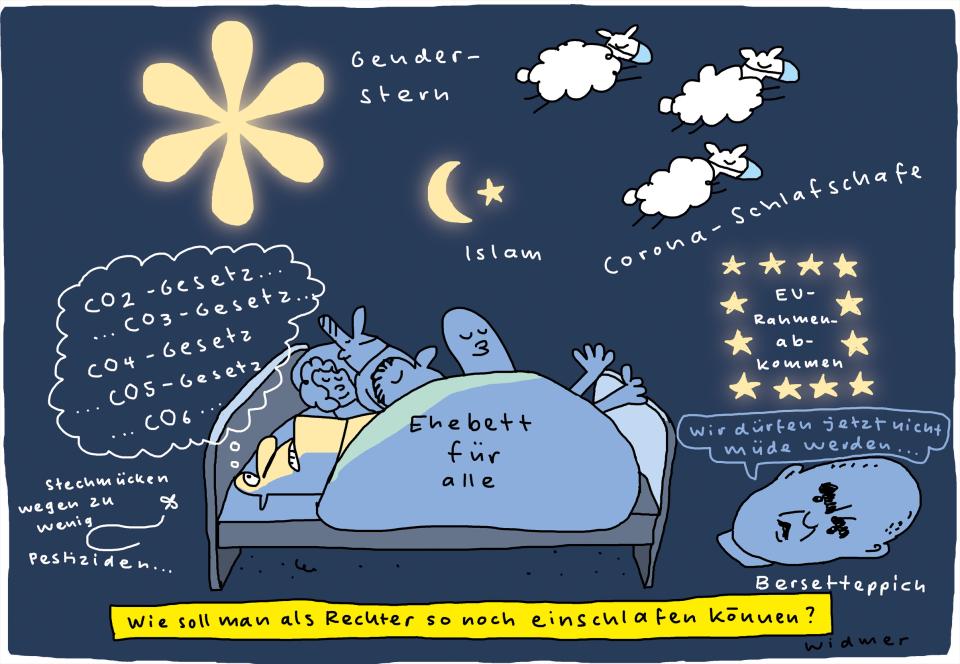 Gender-
stern
Islam
Corona-Schlafschafe
CO2-Gesetz...
...CO3-Gesetz...
CO4-Gesetz
...CO5-Gesetz
...CO6...
EU-
Rahmen-
ab-
kommen
Ehebett
für
alle
Wir dürfen jetzt nicht
müde werden...
Stechmücken
wegen zu
wenig
Pestiziden...
Bersetteppich
Wie soll man als Rechter so noch einschlafen können?
widmer